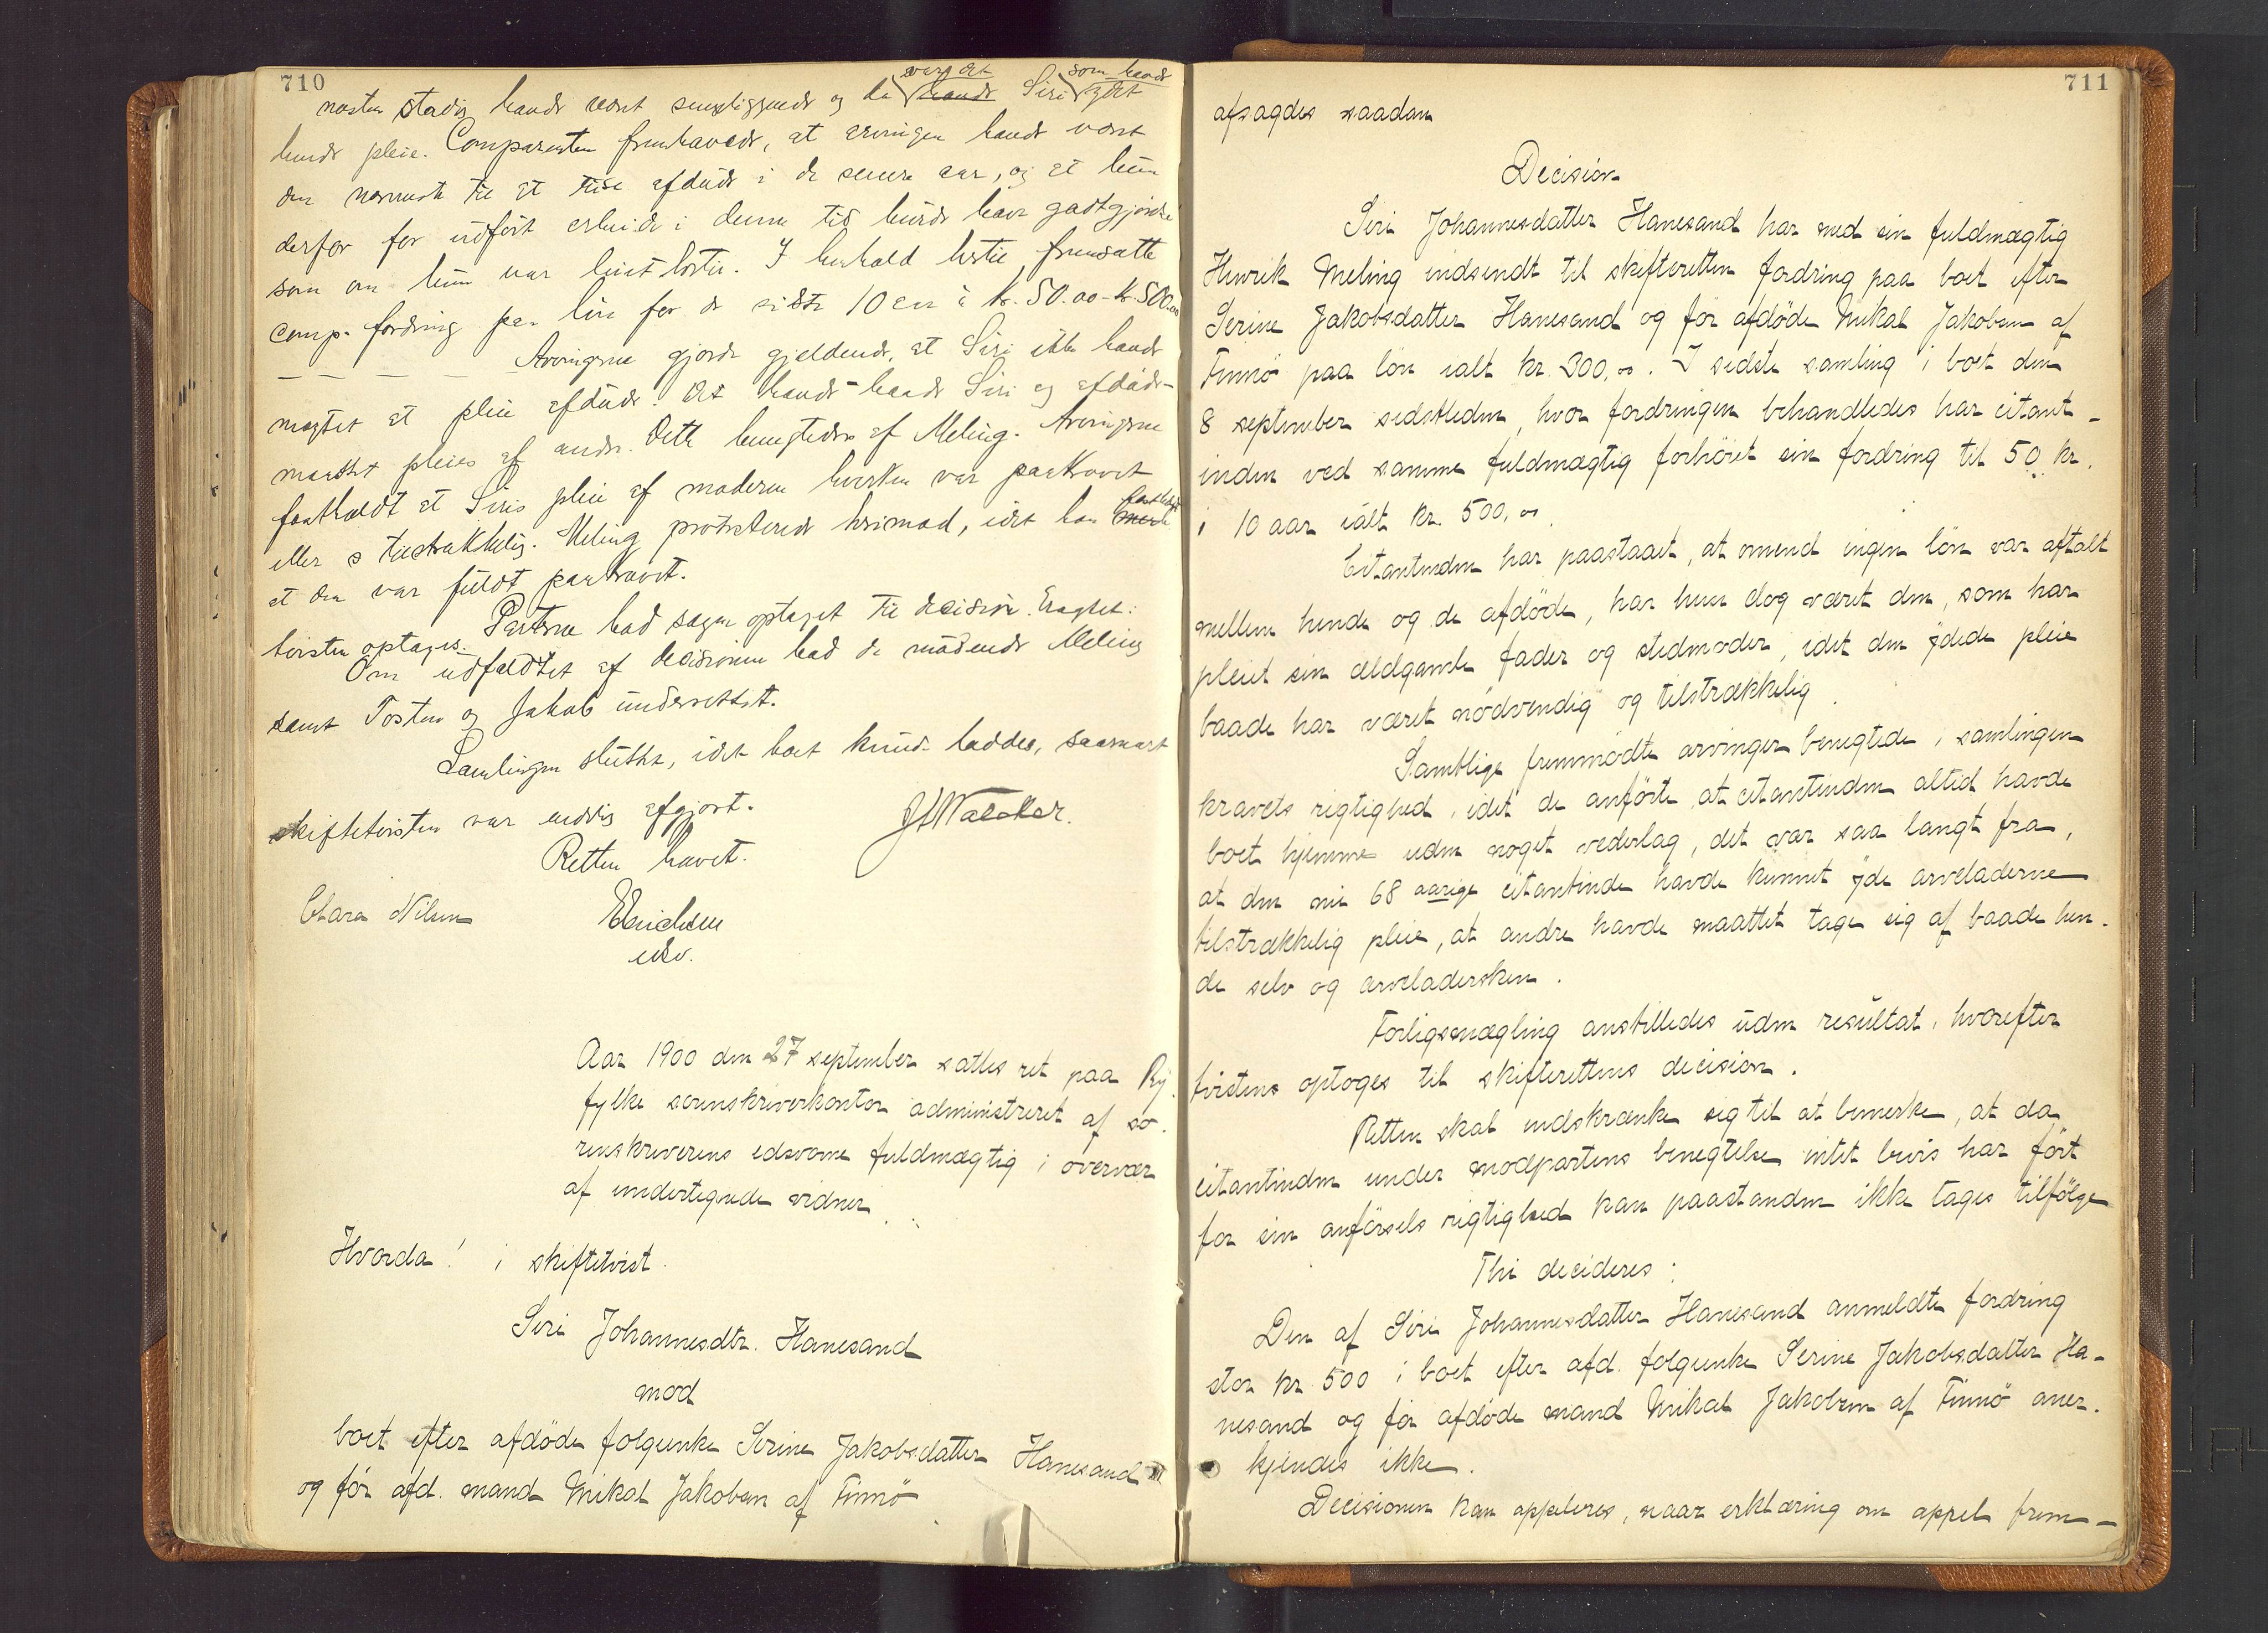 710
næsten stadig havde været sengeliggende og da var det havde Siri som havde ydet
hende pleie. Comparenten fremhævede, at arvingen havde været
den nærmeste til at tilse afdøde i de senere aar, og at hun
derfor for udført arbeide i denne tid burde have godtgjørelse
som om hun var leiet dertil. I henhold hertil fremsatte
comp. fordring paa løn for de sidste 10 aar à kr. 50.00 - kr. 500.00
Arvingerne gjorde gjældende, at Siri ikke havde
magtet at pleie afdøde. Det havde baade Siri og afdøde
maattet pleies af andre. Dette benegtedes af Meling. Arvingerne
fastholdt at Siris pleie af moderen hverken var paakrævet
eller tilstrækkelig. Meling protesterede herimod, idet han fastholdt
at den var fuldt paakrævet.
Parterne bad sagen optaget til decision. Eragtet:
tvisten optages.
Om udfaldet af decisionen bad de mødende Meling
samt Tosten og Jakob underrettet.
Samlingen sluttet, idet boet kunde sluttes, saasnart
skiftetvisten var endelig afgjort.
Retten hævet.
Clara Nilsen
edsv.
Aar 1900 den 27 september sattes ret paa Ry-
fylke sorenskriverkontor administreret af so-
renskriverens edsvorne fuldmægtig i overvær
af undertegnede vidner
Hvorda! i skiftetvist
Siri Johannesdtr. Hanesand
mod
boet efter afdøde folgeenke Serine Jakobsdatter Hanesand
og før afd. mand Mikal Jakobsen af Finnö
711
afsagdes saadan
Decision
Siri Johannesdatter Hanesand har ved sin fuldmægtig
Henrik Meling indsendt til skifteretten fordring paa boet efter
Serine Jakobsdatter Hanesand og før afdøde Mikal Jakobsen af
Finnö paa løn ialt kr. 300,00. I sidste samling i boet den
8 september sidstleden, hvor fordringen behandledes har citant-
inden ved samme fuldmægtig forhøiet sin fordring til 50 kr.
i 10 aar ialt kr. 500,00
Citantinden har paastaaet, at omend ingen løn var aftalt
mellem hende og de afdøde, har hun dog været den, som har
pleiet sin ældgamle fader og stedmoder, idet den ydede pleie
baade har været nødvendig og tilstrækkelig.
Samtlige fremmødte arvinger benegtede i samlingen
kravets rigtighed, idet de anførte, at citantinden altid havde
boet hjemme uden noget vederlag, det var saa langt fra,
at den nu 68 aarige citantinde havde kunnet yde arveladerne
tilstrækkelig pleie, at andre havde maattet tage sig af baade hen-
de selv og arveladersken.
Forligsmægling anstilledes uden resultat, hvorefter
tvistens optoges til skifterettens decision.
Retten skal indskrænke sig til at bemerke, at da
citantinden under modpartens benegtelse intet bevis har ført
for sin anførsels rigtighed kan paastanden ikke tages tilfølge
Thi decideres:
Den af Siri Johannesdatter Hanesand anmeldte fordring
stor kr. 500 i boet efter afd. folgeenke Serine Jakobsdatter Ha-
nesand og før afdøde mand Mikal Jakobsen af Finnö aner-
kjendes ikke.
Decisionen kan appeleres, naar erklæring om appel frem-